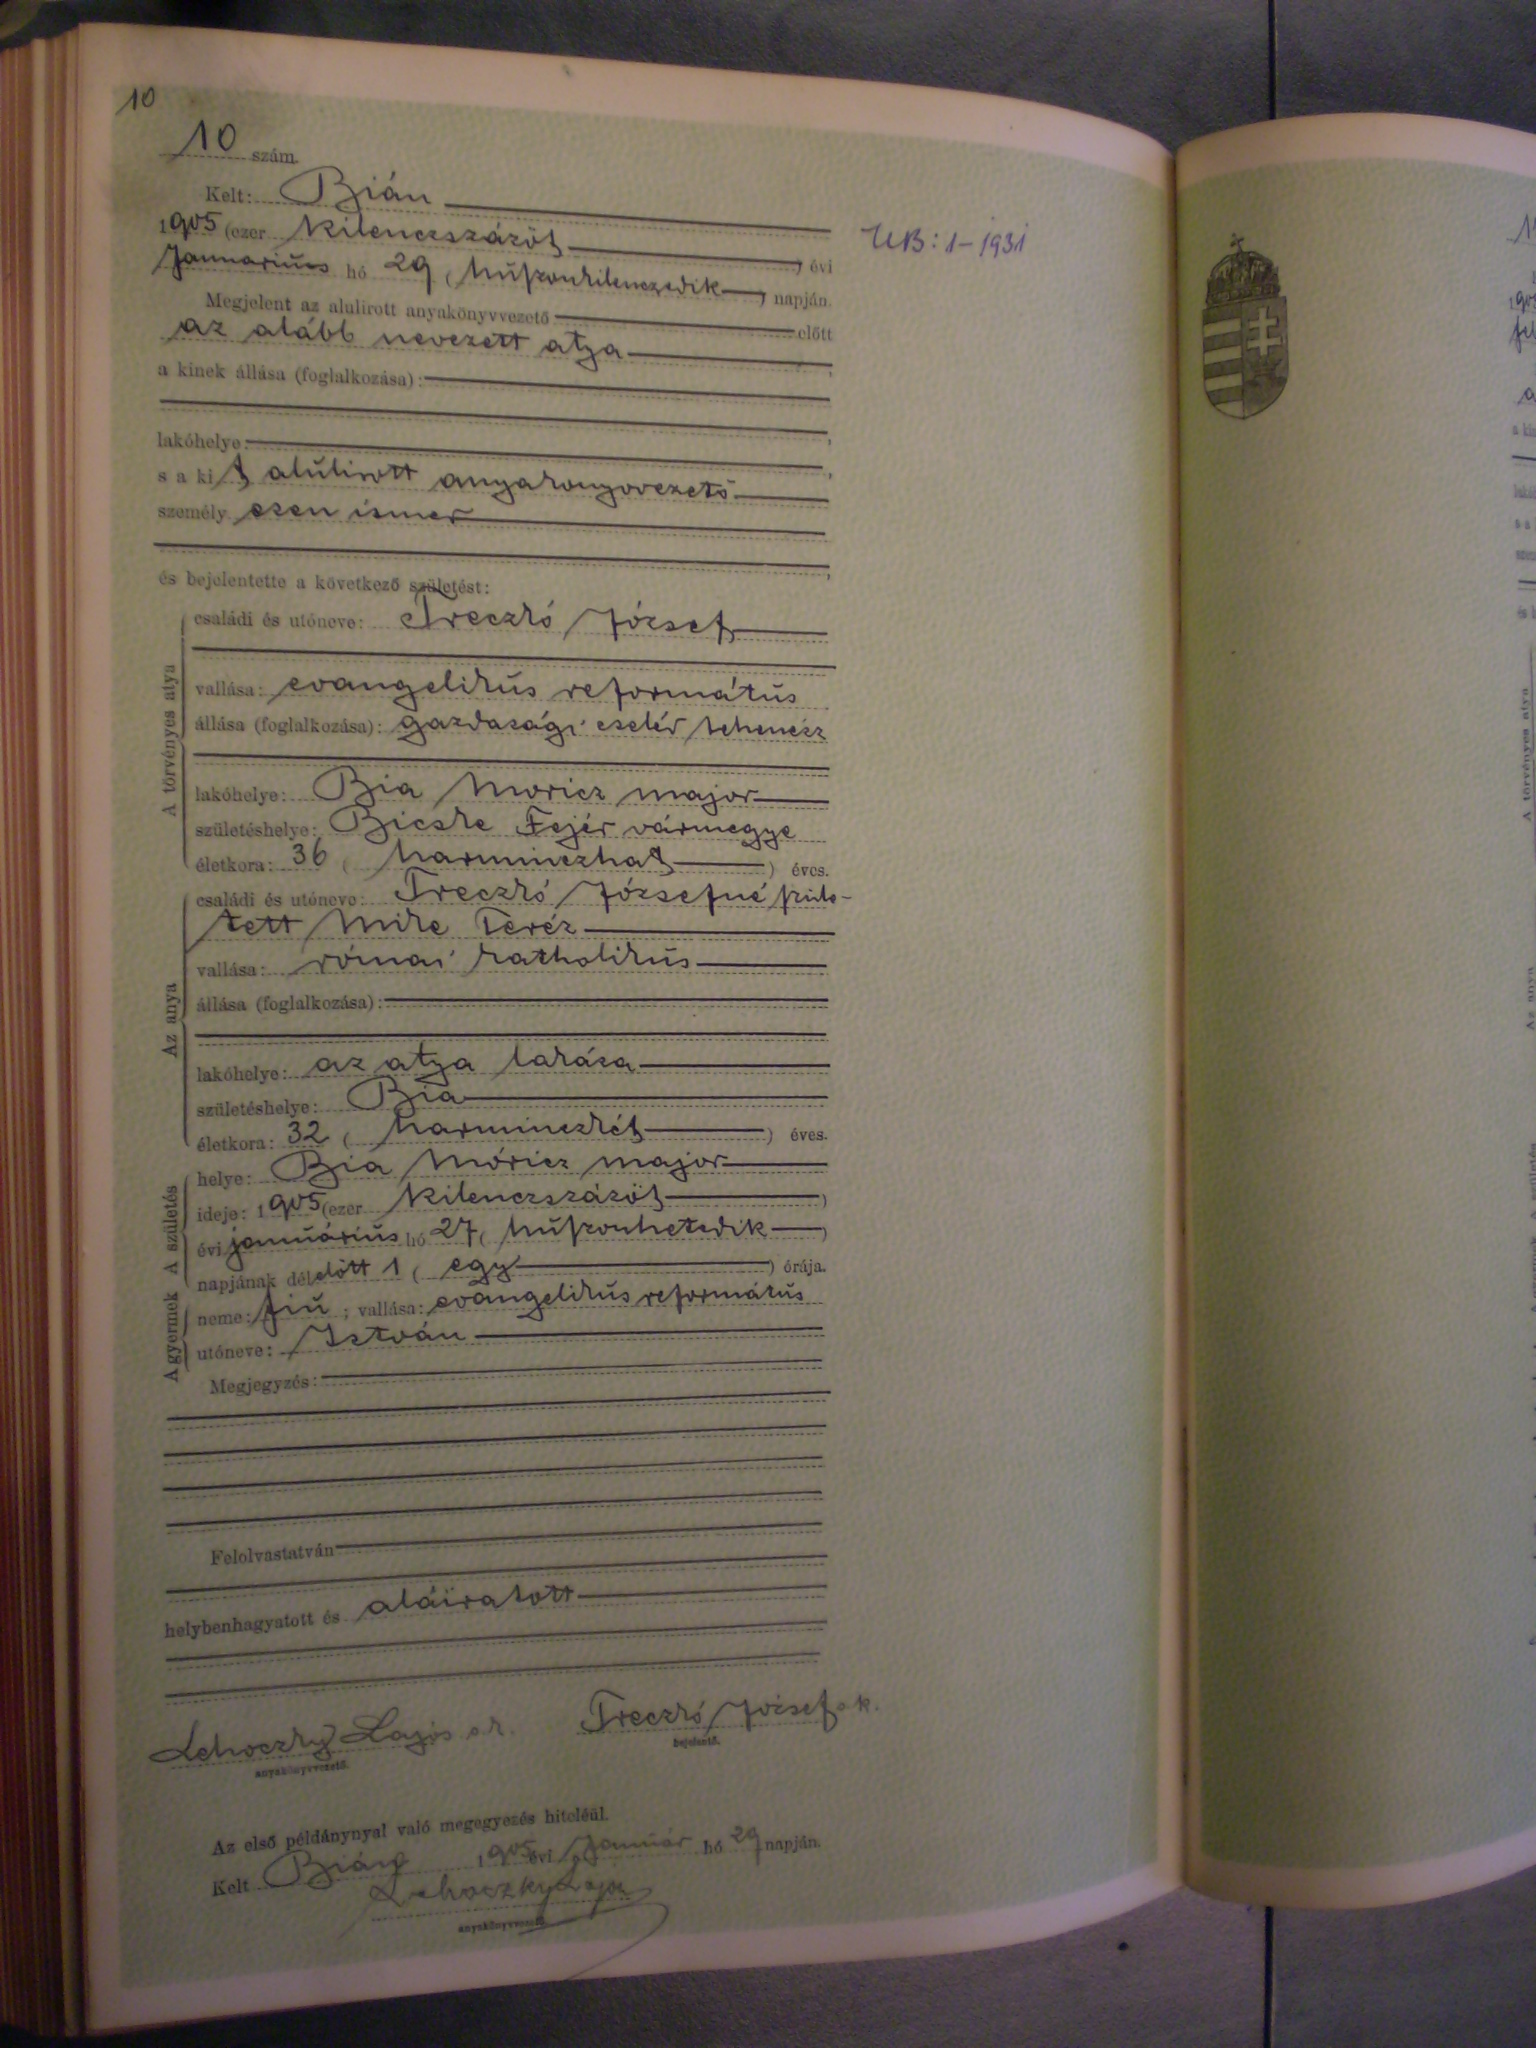 10
10 szám.
Kelt: Bián
1905 (ezer kilenczszázöt) évi
Januarius hó 29 (huszonkilenczedik) napján.
Megjelent az alulirott anyakönyvvezető előtt
az alább nevezett atya,
a kinek állása (foglalkozása):
lakóhelye:
s a kit alulirott anyakönyvvezető
személyesen ismer
és bejelentette a következő születést:
A törvényes atya
családi és utóneve: Treczkó József
vallása: evangelikus református
állása (foglalkozása): gazdasági cseléd tehenész
lakóhelye: Bia Moricz major
születéshelye: Bicske Fejér vármegye
életkora: 36 (harminczhat) éves.
Az anya
családi és utóneve: Treczkó Józsefné szüle-
tett Mike Teréz
vallása: római katholikus
állása (foglalkozása):
lakóhelye: az atya lakása
születéshelye: Bia
életkora: 32 (harminczkét) éves.
A születés
helye: Bia Móricz major
ideje: 1905 (ezer kilenczszázöt)
évi januárius hó 27 (huszonhetedik)
napjának délelőtt 1 (egy) órája.
A gyermek
neme: fiu; vallása: evangelikus református
utóneve: István
Megjegyzés:
Felolvastatván
helybenhagyatott és aláiratott
Lehoczky Lajos s.k. Treczkó József s.k.
anyakönyvvezető. bejelentő.
Az első példánynyal való megegyezés hiteléül.
Kelt Bián 1905 évi Január hó 29 napján.
Lehoczky Lajos
anyakönyvvezető.
UB: 1-1931